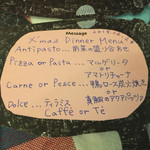 message
X'mas Dinner Menu
Antipasto... 前菜の盛り合わせ
Pizza or Pasta... マルゲリータ
or
アマトリチャーナ
Carne or Pesce... 鴨ロース炭火焼き
or
真鯛のアクアパッツァ
Dolce... ティラミス
Caffè or Tè